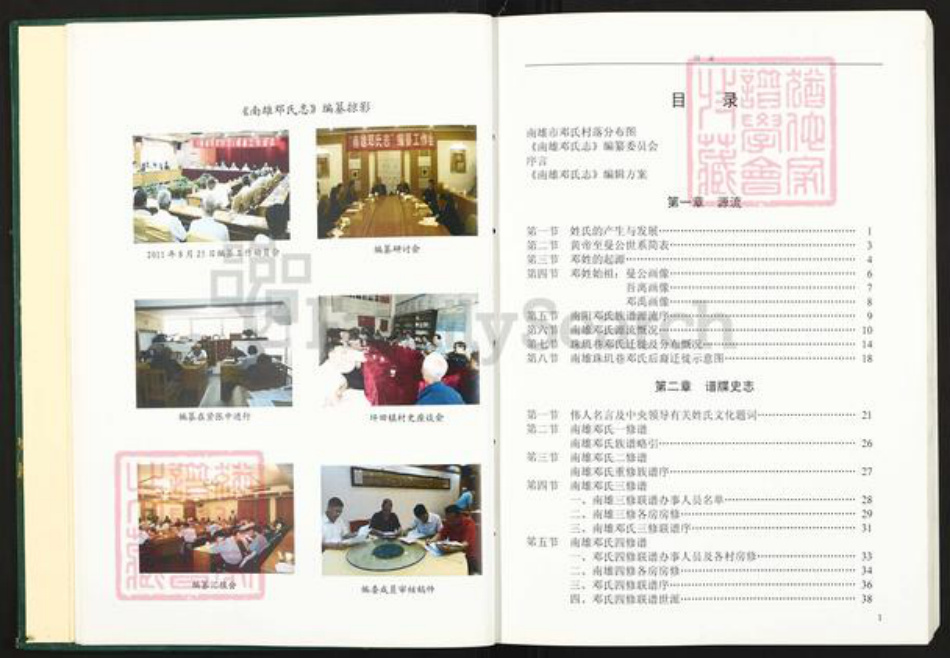 《南雄邓氏志》编纂掠影
"南雄邓氏志"编纂工作会
2011年8月25日编纂工作动员会
编纂研讨会
编纂在紧张中进行
坪田镇村史座谈会
编纂汇报会
编委成员审核稿件
目 录
南雄市邓氏村落分布图
《南雄邓氏志》编纂委员会
序言
《南雄邓氏志》编辑方案
第一章 源流
第一节 姓氏的产生与发展 1
第二节 黄帝至曼公世系简表 3
第三节 邓姓的起源 4
第四节 邓姓始祖：曼公画像 6
吾离画像 7
邓禹画像 8
第五节 南阳邓氏族谱源流序 9
第六节 南雄邓氏源流概况 10
第七节 珠玑巷邓氏迁徙及分布概况 14
第八节 南雄珠玑巷邓氏后裔迁徙示意图 18
第二章 谱牒史志
第一节 伟人名言及中央领导有关姓氏文化题词 21
第二节 南雄邓氏一修谱
南雄邓氏族谱略引 26
第三节 南雄邓氏二修谱
南雄邓氏重修族谱序 27
第四节 南雄邓氏三修谱
一、南雄三修联谱办事人员名单 28
二、南雄三修各房房修 29
三、南雄邓氏三修联谱序 31
第五节 南雄邓氏四修谱
一、邓氏四修联谱办事人员及各村房修 33
二、南雄四修各房房修 34
三、邓氏四修联谱序 36
四、邓氏四修联谱世派 38
1